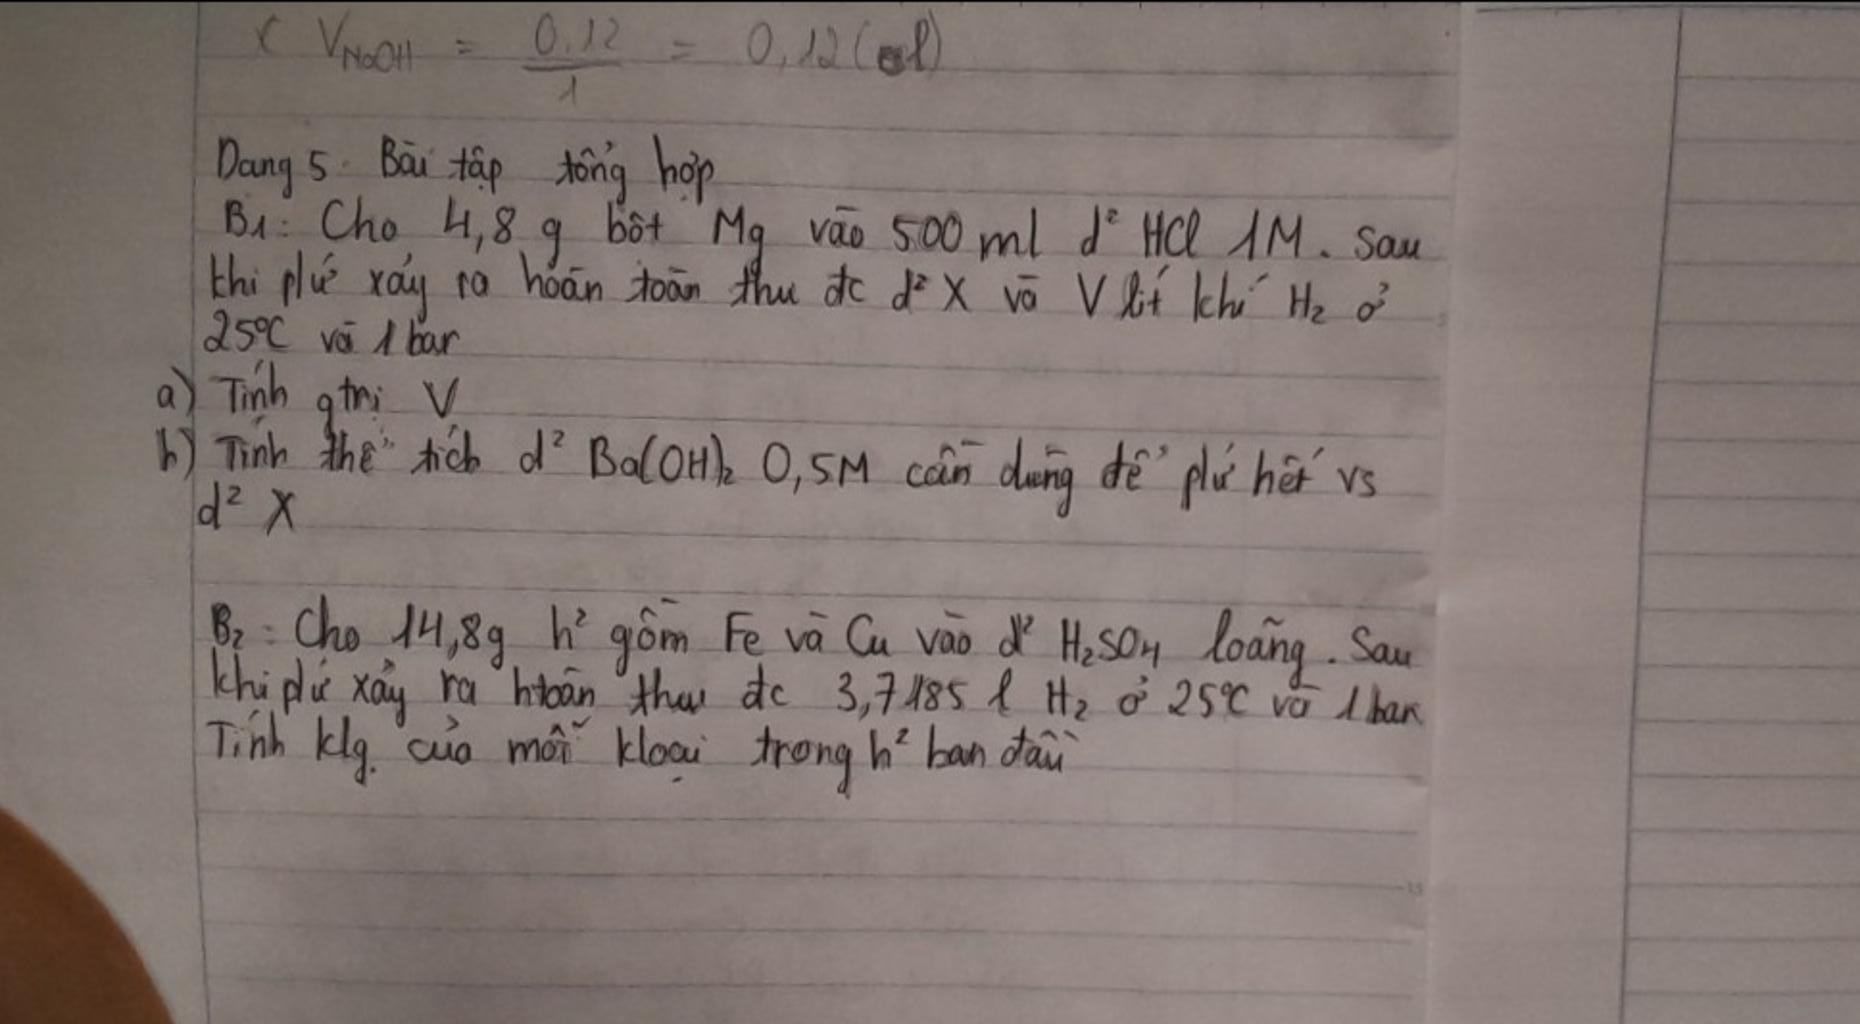 V NaOH = 0,12 / 1 = 0,12 (l)
Dạng 5. Bài tập tổng hợp
B1: Cho 4,8 g bột Mg vào 500 ml d² HCl 1M. Sau
khi pứ xảy ra hoàn toàn thu đc d² X và V lít khí H2 ở
25°C và 1 bar
a) Tính gtrị V
b) Tính thể tích d² Ba(OH)2 0,5M cần dùng để pứ hết vs
d² X
B2: Cho 14,8g h² gồm Fe và Cu vào d² H2SO4 loãng. Sau
khi pứ xảy ra htoàn thu đc 3,7185 l H2 ở 25°C và 1 bar
Tính klg. của mỗi kloại trong h² ban đầu